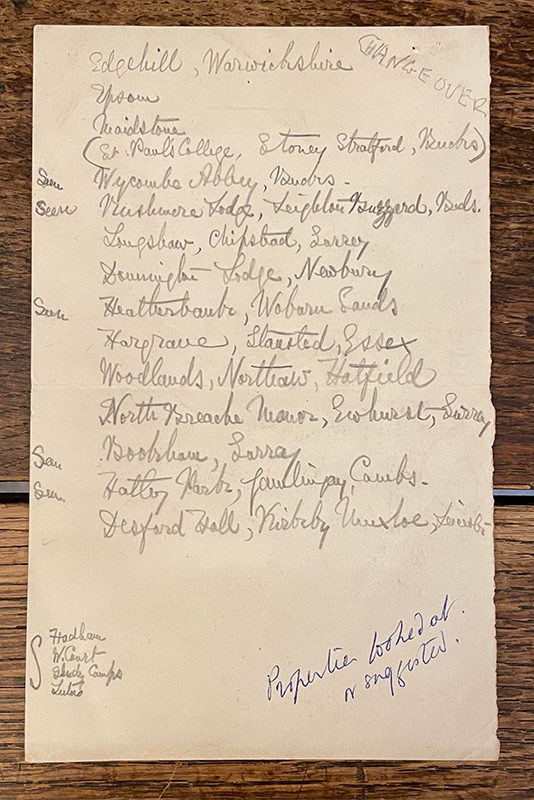 CHANGE OVER
Edgehill, Warwickshire
Epsom
Maidstone
(St. Paul's College, Stoney Stratford, Bucks)
Seen Wycombe Abbey, Bucks -
Seen Rushmore Lodge, Leighton Buzzard, Beds.
Longshaw, Chipstead, Surrey
Donnington Lodge, Newbury
Seen Heatherbank, Woburn Sands
Hargrave, Stansted, Essex
Woodlands, Northaw, Hatfield
North Breache Manor, Ewhurst, Surrey
Seen Bookham, Surrey
Seen Hatley Park, Gamlingay, Cambs -
Desford Hall, Kirkby Muxloe, Leics -
Hadham
W. Court
Camps
Properties looked at
or suggested.